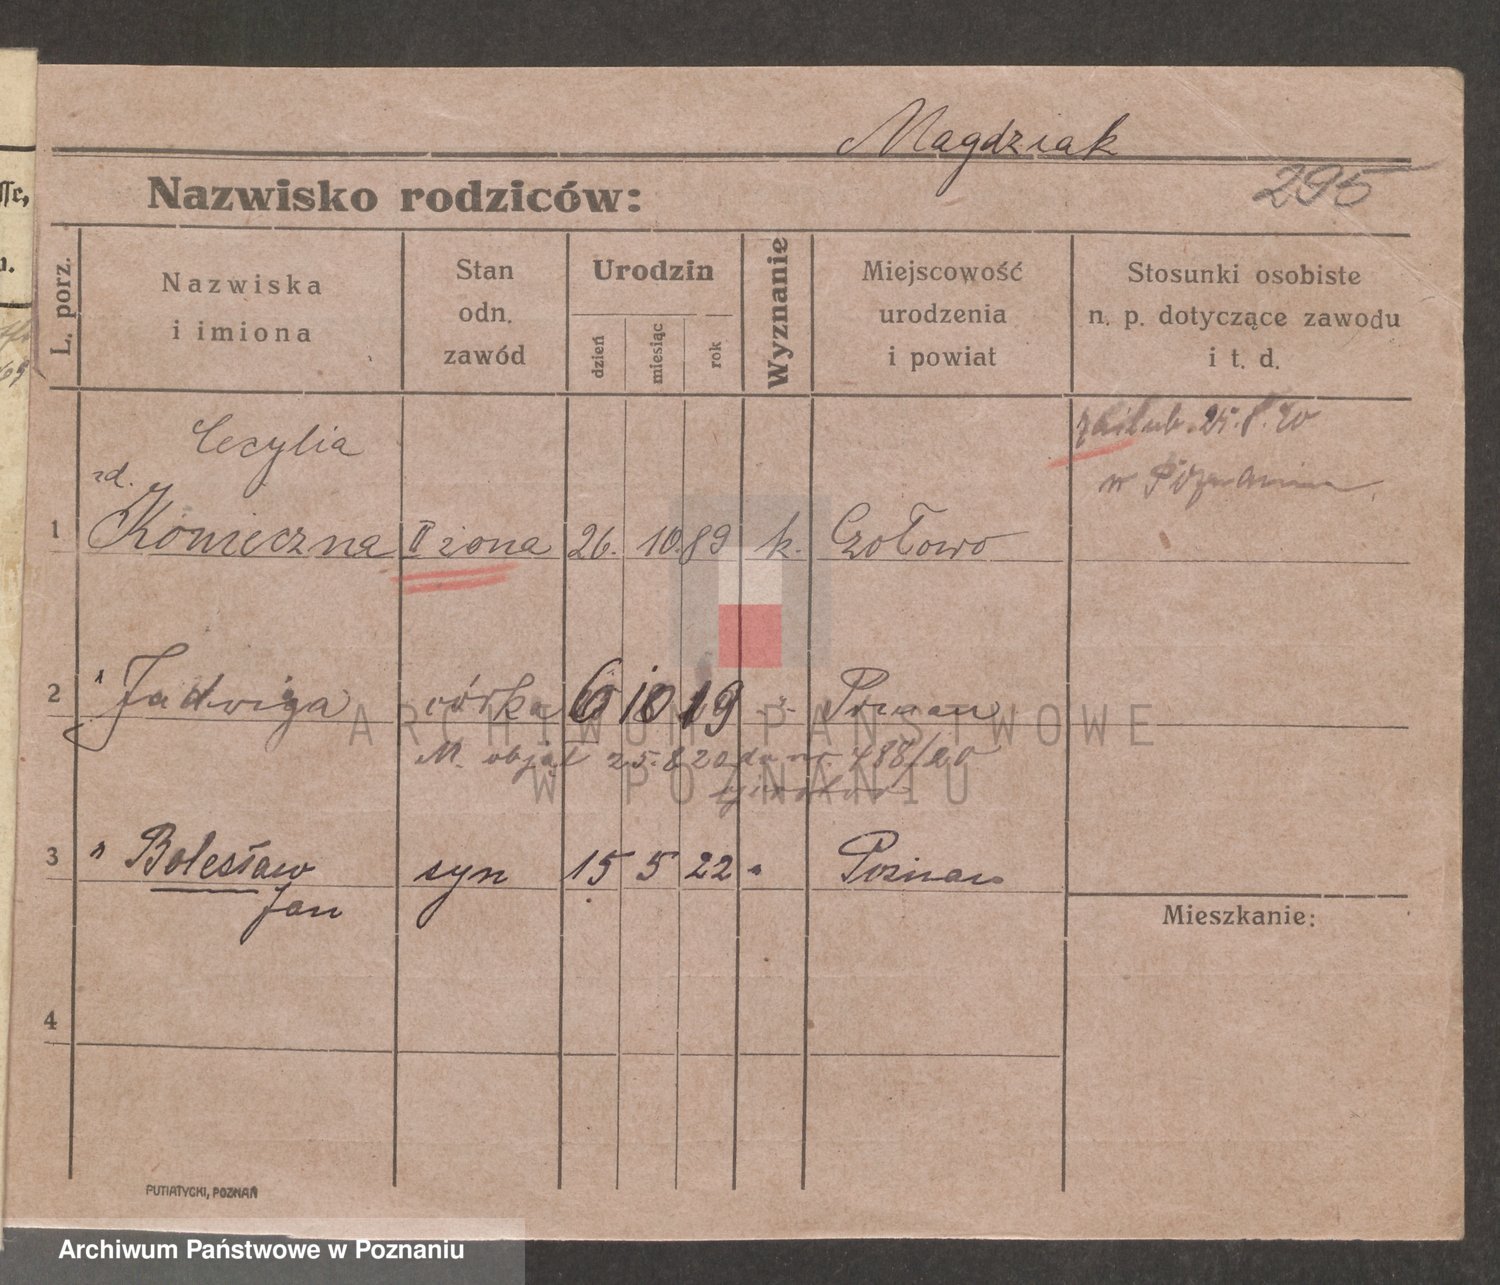 Magdziak
Nazwisko rodziców:
295
L. porz.
Nazwiska
i imiona
Stan
odn.
zawód
Urodzin
dzień
miesiąc
rok
Wyznanie
Miejscowość
urodzenia
i powiat
Stosunki osobiste
n. p. dotyczące zawodu
i t. d.
Cecylia
zaślub. 25.8.20
w Poznaniu
1 zd. Konieczna II żona 26. 10. 89 k. Czołowo
2 " Jadwiga córka 6 10 19 Poznań
M. objął 25.8.20 do nr. 488/20
3 " Bolesław syn 15 5 22 " Poznań
Jan
Mieszkanie:
4
PUTIATYCKI, POZNAŃ
ARCHIWUM PAŃSTWOWE
W POZNANIU
Archiwum Państwowe w Poznaniu